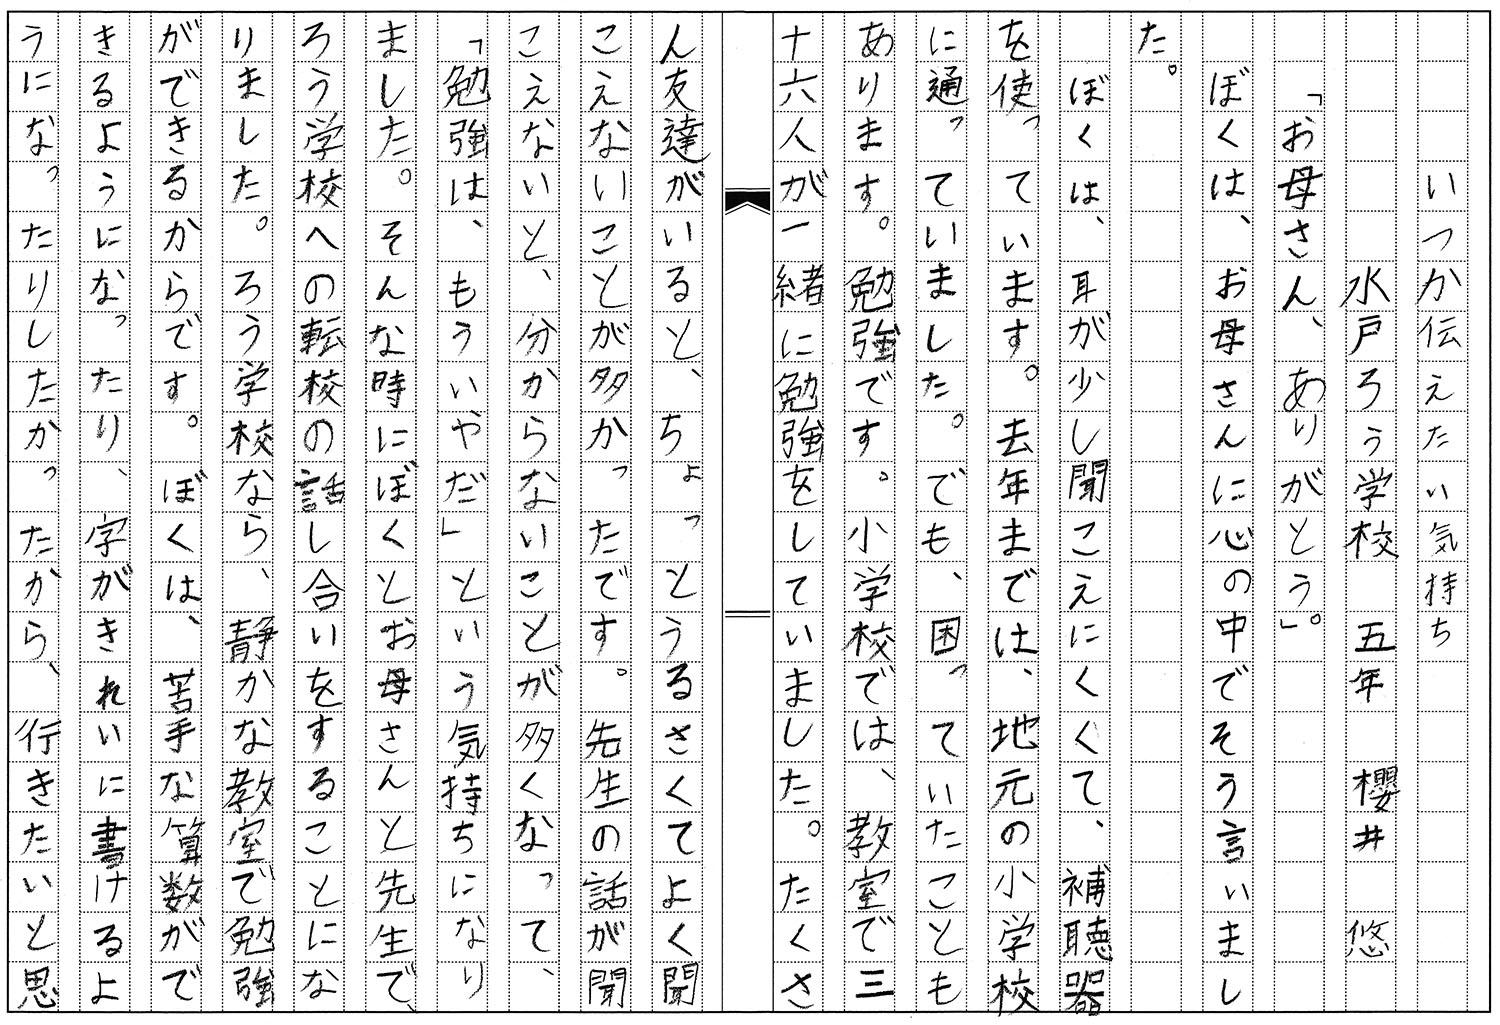 いつか伝えたい気持ち
水戸ろう学校　五年　櫻井　悠
「お母さん、ありがとう。」
ぼくは、お母さんに心の中でそう言いまし
た。
ぼくは、耳が少し聞こえにくくて、補聴器
を使っています。去年までは、地元の小学校
に通っていました。でも、困っていたことも
あります。勉強です。小学校では、教室で三
十六人が一緒に勉強をしていました。たくさ
ん友達がいると、ちょっとうるさくてよく聞
こえないことが多かったです。先生の話が聞
こえないと、分からないことが多くなって、
「勉強は、もういやだ」という気持ちになり
ました。そんな時にぼくとお母さんと先生で、
ろう学校への転校の話し合いをすることにな
りました。ろう学校なら、静かな教室で勉強
ができるからです。ぼくは、苦手な算数がで
きるようになったり、字がきれいに書けるよ
うになったりしたかったから、行きたいと思